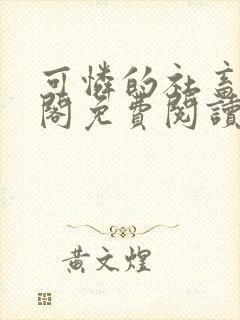 可憐的社畜
閣免費閱讀
黃文煌